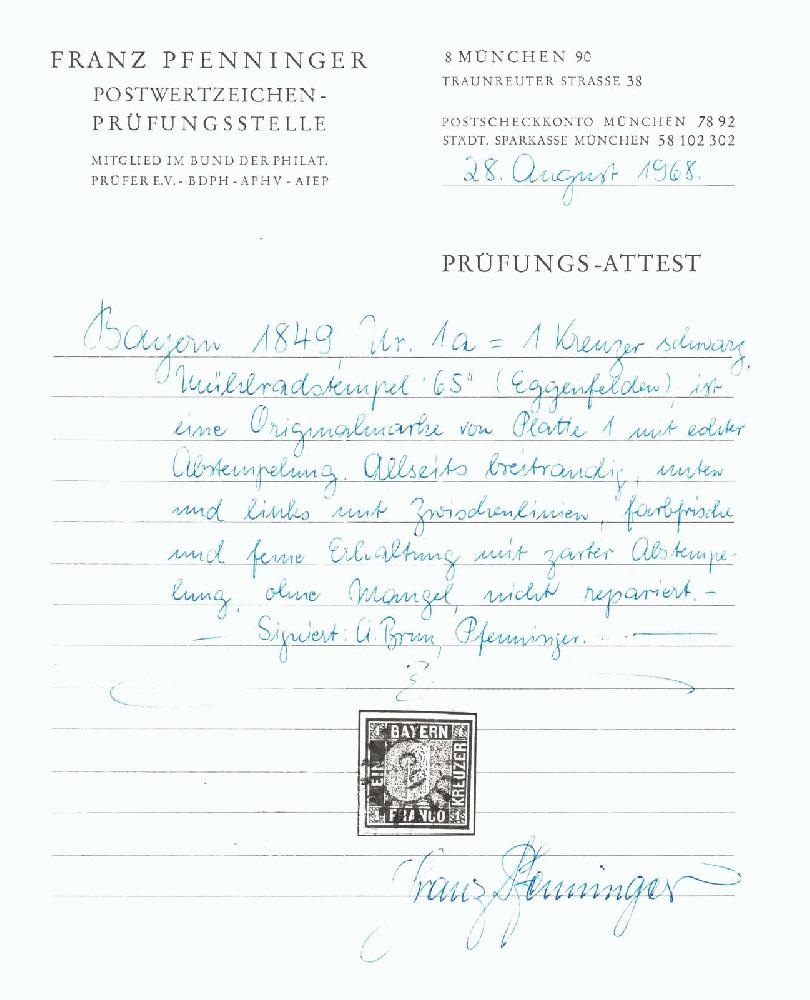 FRANZ PFENNINGER
POSTWERTZEICHEN-
PRÜFUNGSSTELLE
MITGLIED IM BUND DER PHILAT.
PRÜFER E.V. - BDPH - APHV - AIEP
8 MÜNCHEN 90
TRAUNREUTER STRASSE 38
POSTSCHECKKONTO MÜNCHEN 78 92
STÄDT. SPARKASSE MÜNCHEN 58 102 302
28. August 1968.
PRÜFUNGS-ATTEST
Bayern 1849, Nr. 1a = 1 Kreuzer schwarz,
Mühlradstempel "65" (Eggenfelden), ist
eine Originalmarke von Platte 1 mit echter
Abstempelung. Allseits breitrandig, unten
und links mit Zwischenlinien, farbfrische
und feine Erhaltung mit zarter Abstempe-
lung, ohne Mängel, nicht repariert. -
- Signiert: A. Brun, Pfenninger. -
BAYERN
EIN
KREUZER
FRANCO
Franz Pfenninger